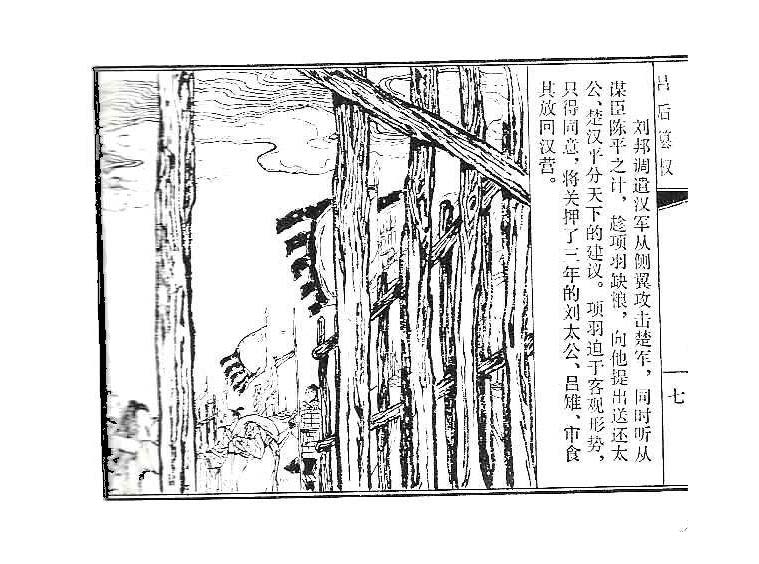 吕后篡权
七
刘邦调遣汉军从侧翼攻击楚军，同时听从
谋臣陈平之计，趁项羽缺粮，向他提出送还太
公、楚汉平分天下的建议。项羽迫于客观形势，
只得同意，将关押了三年的刘太公、吕雉、审食
其放回汉营。